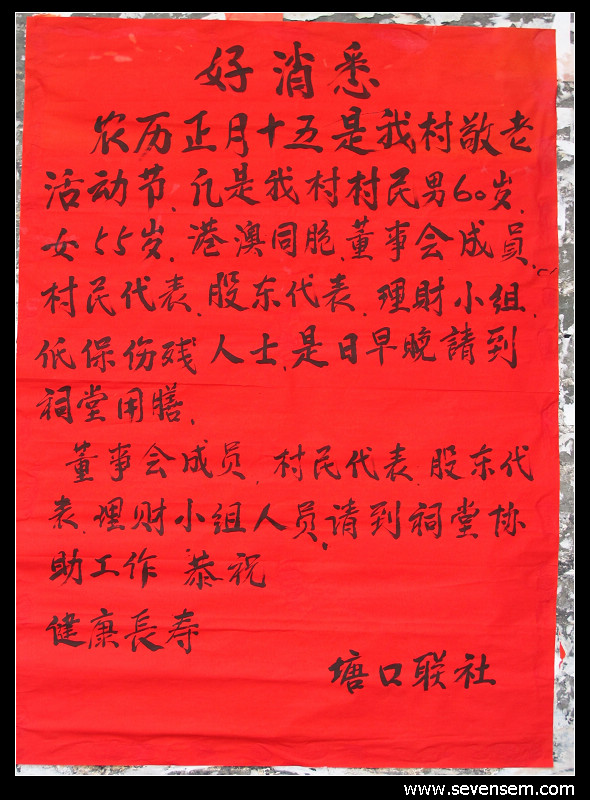 好消悉
农历正月十五是我村敬老
活动节、凡是我村村民男60岁、
女55岁、港澳同胞、董事会成员、
村民代表、股东代表、理财小组、
低保伤残人士、是日早晚請到
祠堂用膳、
董事会成员、村民代表、股东代
表、理财小组人员、请到祠堂协
助工作 恭祝
健康長寿
塘口联社
www.sevensem.com